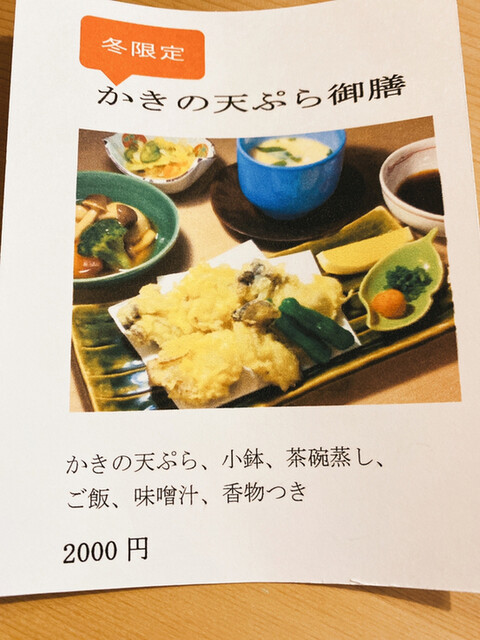 冬限定
かきの天ぷら御膳
かきの天ぷら、小鉢、茶碗蒸し、
ご飯、味噌汁、香物つき
2000 円